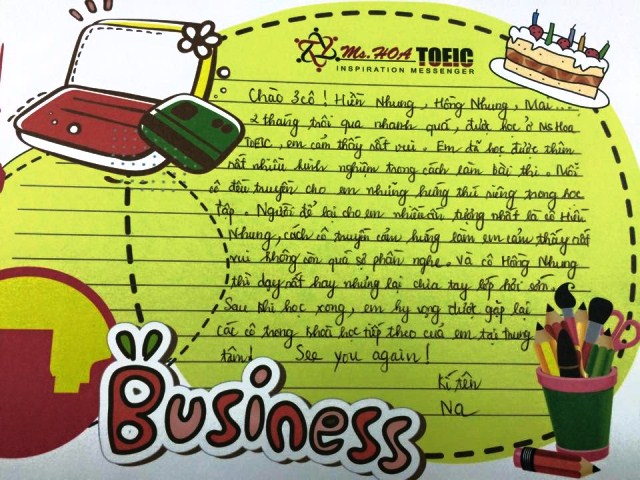 Ms. HOA TOEIC
INSPIRATION MESSENGER
Chào 3 cô! Hiền Nhung, Hồng Nhung, Mai...
2 tháng trôi qua nhanh quá, được học ở Ms Hoa
TOEIC, em cảm thấy rất vui. Em đã học được thêm
rất nhiều kinh nghiệm trong cách làm bài thi. Mỗi
cô đều truyền cho em những hứng thú riêng trong học
tập. Người để lại cho em nhiều ấn tượng nhất là cô Hiền
Nhung, cách cô truyền cảm hứng làm em cảm thấy rất
vui không còn quá sợ phần nghe. Và cô Hồng Nhung
thì dạy rất hay nhưng lại chia tay lớp hơi sớm.
Sau khi học xong, em hy vọng được gặp lại
các cô trong khoá học tiếp theo của em tại trung
tâm! See you again!
Kí tên
Na
Business